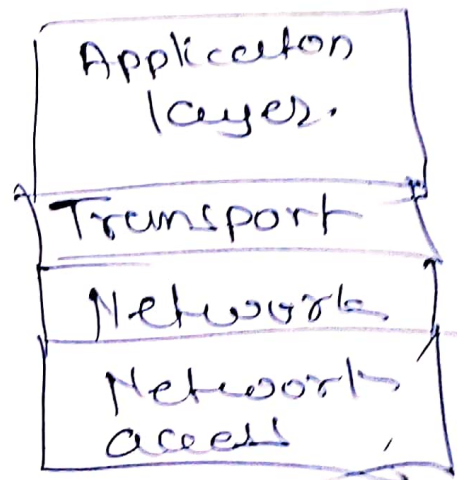 Application
layer.
Transport
Network
Network
access